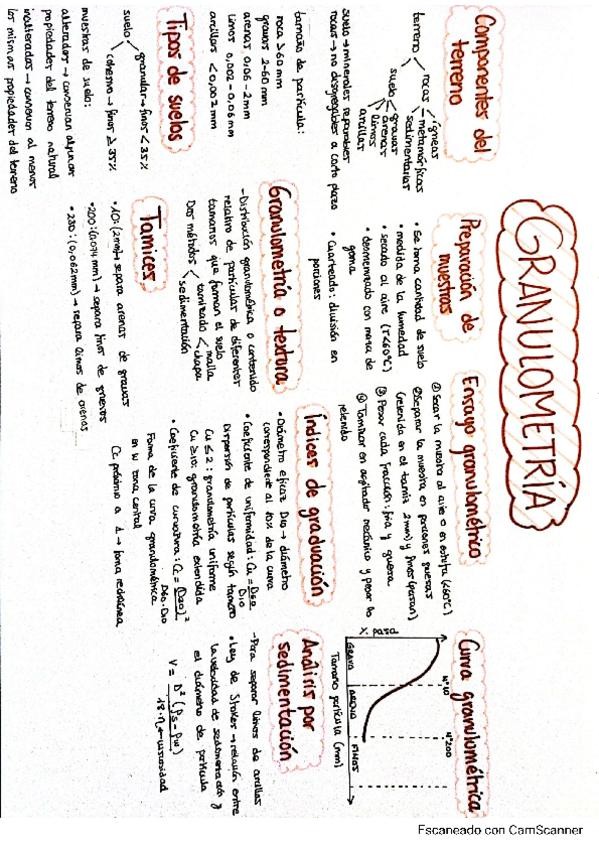 GRANULOMETRÍA
Componentes del
terreno
terreno
rocas
ígneas
metamórficas
sedimentarias
suelo
gravas
arenas
limos
arcillas
suelo → minerales separables
rocas → no disgregables a corto plazo
tamaño de partícula:
roca > 60 mm
gravas 2-60 mm
arenas 0,06-2 mm
limos 0,002-0,06 mm
arcillas < 0,002 mm
Tipos de suelos
suelo
granular → finos < 35%
cohesivo → finos ≥ 35%
muestras de suelo:
alteradas → conservan algunas
propiedades del terreno natural
inalteradas → conservan al menos
las mismas propiedades del terreno
Preparación de
muestras
• Se toma cantidad de suelo
• medida de la humedad
• secado al aire (T<60°C)
• desmenuzado con maza de
goma
• Cuarteado: división en
porciones
Granulometría o textura
- Distribución granulométrica o contenido
relativo de partículas de diferentes
tamaños que forman el suelo
Dos métodos
tamizado
malla
chapa
sedimentación
Tamices
• 10: (2mm) → separa arenas de gravas
• 200: (0,074 mm) → separa finos de gruesos
• 230: (0,062mm) → separa limos de arenas
Ensayo granulométrico
① Secar la muestra al aire o en estufa (<60°C)
② Separar la muestra en porciones gruesas
(retenida en el tamiz 2mm) y finas (pasan)
③ Pesar cada fracción: fina y gruesa
④ Tamizar en agitador mecánico y pesar lo
retenido
Índices de graduación
• Diámetro eficaz D10 → diámetro
correspondiente al 10% de la curva
• Coeficiente de uniformidad: Cu = D60
D10
Dispersión de partículas según tamaño
Cu ≤ 2: granulometría uniforme
Cu ≥ 10: granulometría extendida
• Coeficiente de curvatura: Cc = (D30)²
D60·D10
Forma de la curva granulométrica
en su zona central
Cc próximo a 1 → forma redondeada
Curva granulométrica
% pasa
Nº10
Nº200
GRAVA
ARENA
FINOS
Tamaño partícula (mm)
Análisis por
sedimentación
- Para separar limos de arcillas
• Ley de Stokes → relación entre
la velocidad de sedimentación y
el diámetro de partícula
V = D² (ρs - ρw)
18·η ← viscosidad
Escaneado con CamScanner